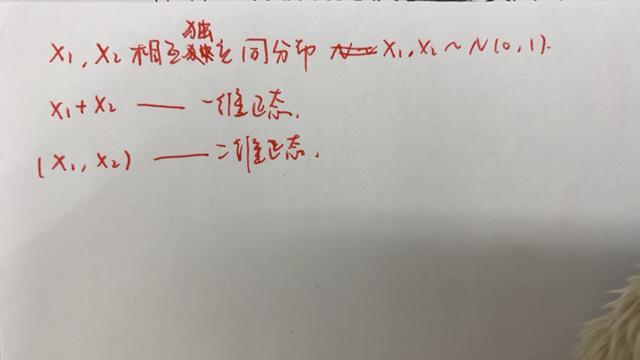 X₁, X₂ 相互独立同分布 X₁, X₂ ~ N(0, 1).
X₁ + X₂ —— 一维正态.
(X₁, X₂) —— 二维正态.